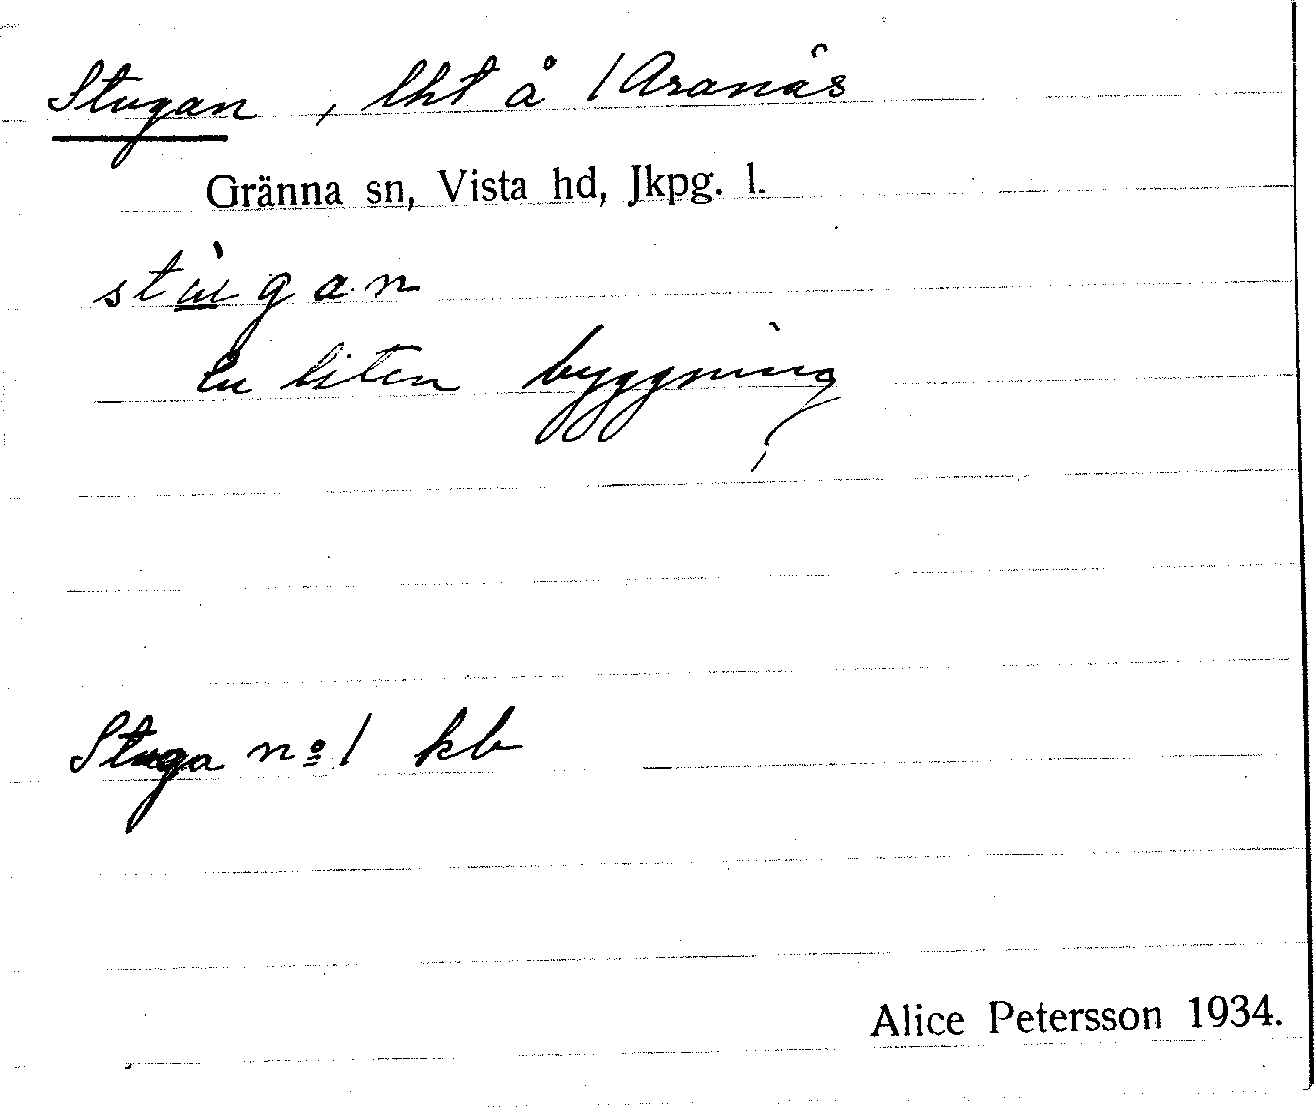 Stugan, lht å 1 Aranäs
Gränna sn, Vista hd, Jkpg. l.
stùgan
En liten byggning
Stuga nº 1 kb
Alice Petersson 1934.